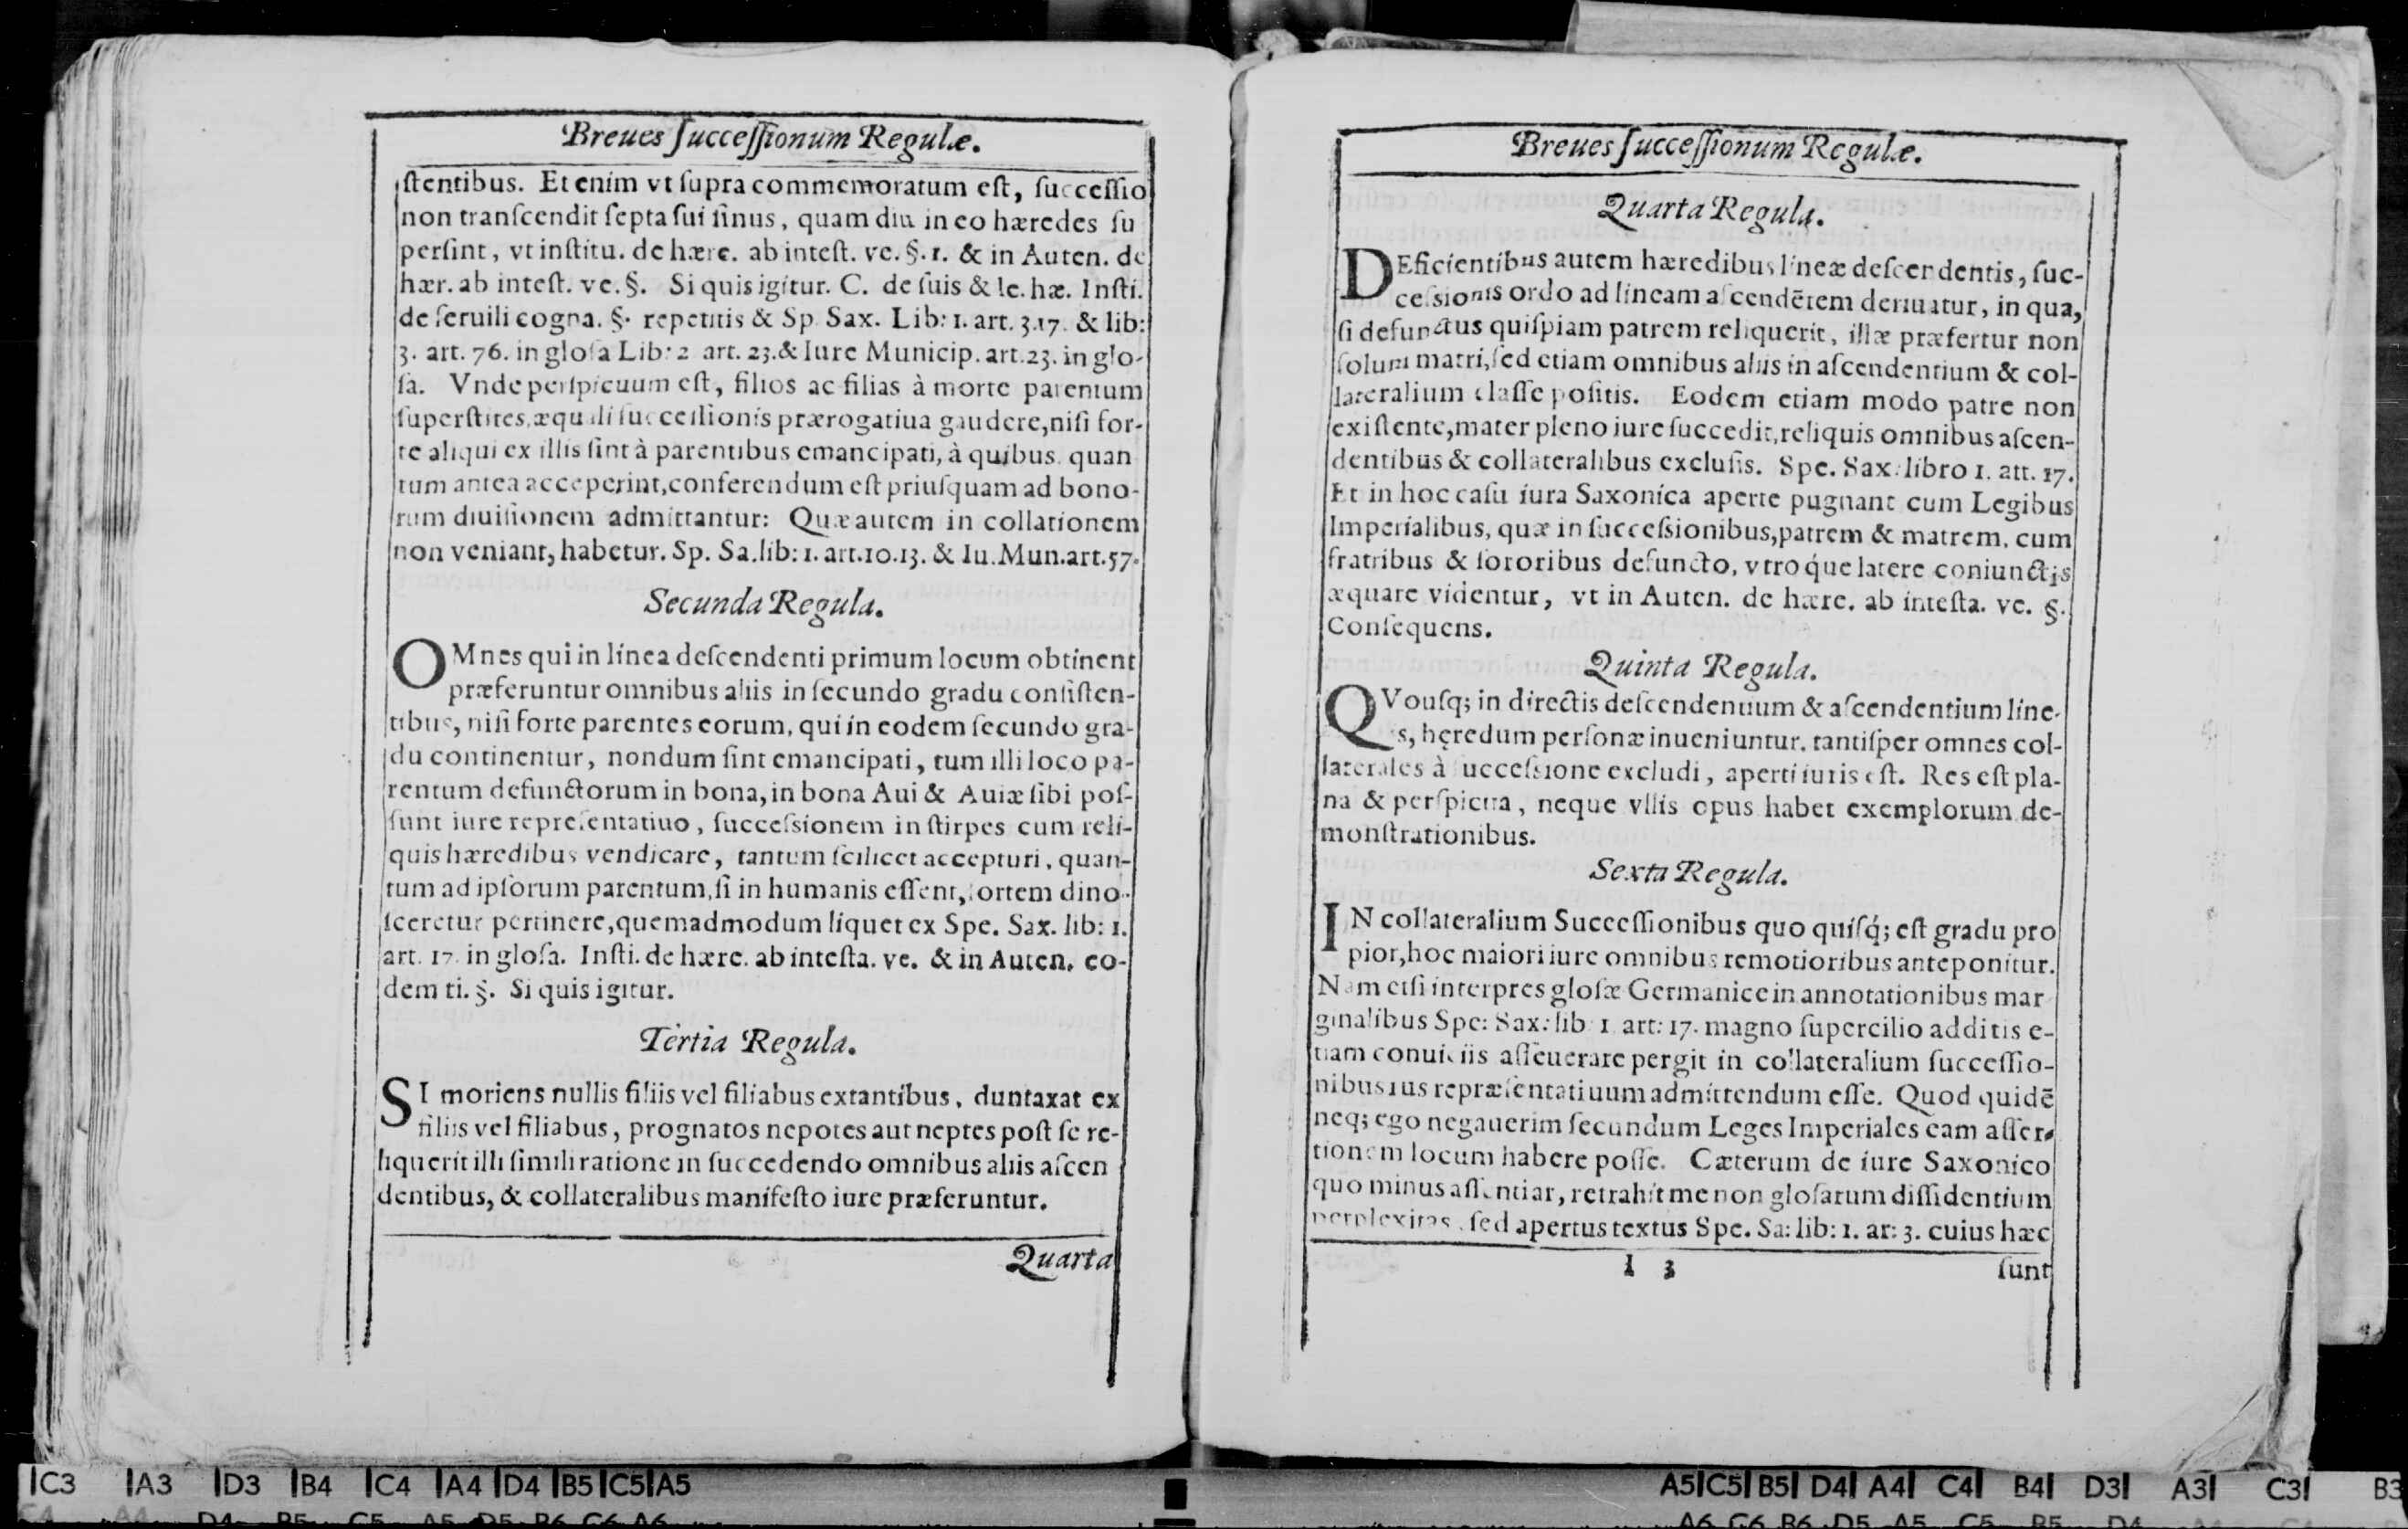 Breues ſucceſſionum Regulæ.
ſtentibus. Et enim vt ſupra commemoratum eſt, ſucceſſio
non tranſcendit ſepta ſui ſinus, quam diu in eo hæredes ſu
perſint, vt inſtitu. de hære. ab inteſt. ve. §. 1. & in Auten. de
hær. ab inteſt. ve. §. Si quis igitur. C. de ſuis & le. hæ. Inſti.
de ſeruili cogna. §. repetitis & Sp. Sax. Lib: 1. art. 3.17. & lib:
3. art. 76. in gloſa Lib: 2 art. 23. & Iure Municip. art. 23. in glo-
ſa. Vnde perſpicuum eſt, filios ac filias à morte parentum
ſuperſtites, æquali ſucceſſionis prærogatiua gaudere, niſi for-
te aliqui ex illis ſint à parentibus emancipati, à quibus quan
tum antea acceperint, conferendum eſt priuſquam ad bono-
rum diuiſionem admittantur: Quæ autem in collationem
non veniant, habetur. Sp. Sa. lib: 1. art. 10. 13. & Iu. Mun. art. 57.
Secunda Regula.
OMnes qui in linea deſcendenti primum locum obtinent
præferuntur omnibus aliis in ſecundo gradu conſiſten-
tibus, niſi forte parentes eorum, qui in eodem ſecundo gra-
du continentur, nondum ſint emancipati, tum illi loco pa-
rentum defunctorum in bona, in bona Aui & Auiæ ſibi poſ-
ſunt iure repreſentatiuo, ſucceſsionem in ſtirpes cum reli-
quis hæredibus vendicare, tantum ſcilicet accepturi, quan-
tum ad ipſorum parentum, ſi in humanis eſſent, ſortem dino-
ſceretur pertinere, quemadmodum liquet ex Spe. Sax. lib: 1.
art. 17. in gloſa. Inſti. de hære. ab inteſta. ve. & in Auten. eo-
dem ti. §. Si quis igitur.
Tertia Regula.
SI moriens nullis filiis vel filiabus extantibus, duntaxat ex
filiis vel filiabus, prognatos nepotes aut neptes poſt ſe re-
liquerit illi ſimili ratione in ſuccedendo omnibus aliis aſcen
dentibus, & collateralibus manifeſto iure præferuntur.
Quarta
Breues ſucceſſionum Regulæ.
Quarta Regula.
DEficientibus autem hæredibus lineæ deſcendentis, ſuc-
ceſsionis ordo ad lineam aſcendẽtem deriuatur, in qua,
ſi defunctus quiſpiam patrem reliquerit, illæ præfertur non
ſolum matri, ſed etiam omnibus aliis in aſcendentium & col-
lateralium claſſe poſitis. Eodem etiam modo patre non
exiſtente, mater pleno iure ſuccedit, reliquis omnibus aſcen-
dentibus & collateralibus excluſis. Spe. Sax: libro 1. att. 17.
Et in hoc caſu iura Saxonica aperte pugnant cum Legibus
Imperialibus, quæ in ſucceſsionibus, patrem & matrem, cum
fratribus & ſororibus defuncto, vtro q́ue latere coniunctis
æquare videntur, vt in Auten. de hære. ab inteſta. ve. §.
Conſequens.
Quinta Regula.
QVouſq; in directis deſcendentium & aſcendentium line-
s, hęredum perſonæ inueniuntur, tantiſper omnes col-
laterales à ſucceſsione excludi, aperti iuris eſt. Res eſt pla-
na & perſpicua, neque vllis opus habet exemplorum de-
monſtrationibus.
Sexta Regula.
IN collateralium Succeſſionibus quo quiſq́; eſt gradu pro
pior, hoc maiori iure omnibus remotioribus anteponitur.
Nam etſi interpres gloſæ Germanice in annotationibus mar
ginalibus Spe: Sax: lib 1 art: 17. magno ſupercilio additis e-
tiam conuiciis aſſeuerare pergit in collateralium ſucceſſio-
nibus ius repræſentatiuum admittendum eſſe. Quod quidẽ
neq; ego negauerim ſecundum Leges Imperiales eam aſſer-
tionem locum habere poſſe. Cæterum de iure Saxonico
quo minus aſſentiar, retrahit me non gloſatum diſſidentium
perplexitas, ſed apertus textus Spe. Sa: lib: 1. ar: 3. cuius hæc
I 3
ſunt
C3 A3 D3 B4 C4 A4 D4 B5 C5 A5
A5 C5 B5 D4 A4 C4 B4 D3 A3 C3 B3